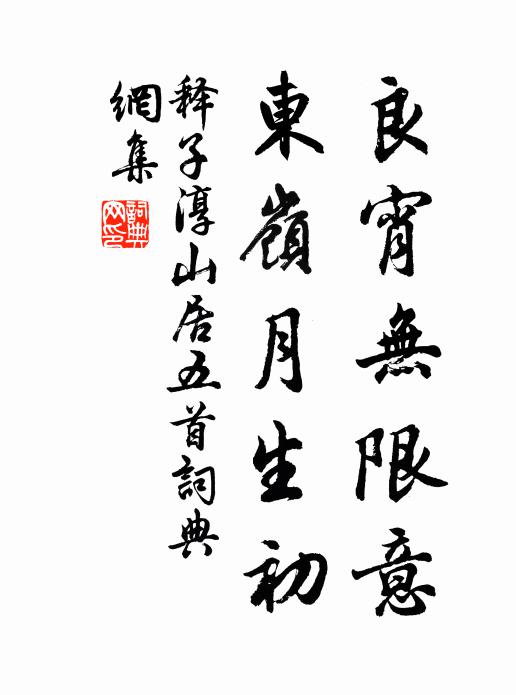 良宵無限意
東嶺月生初
释子淳山居五首詞典
網集
詞典網印